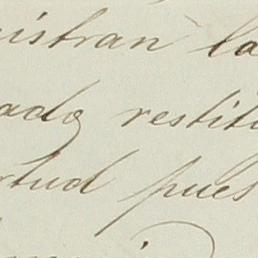 nistran la
ado restitu
rtud pues